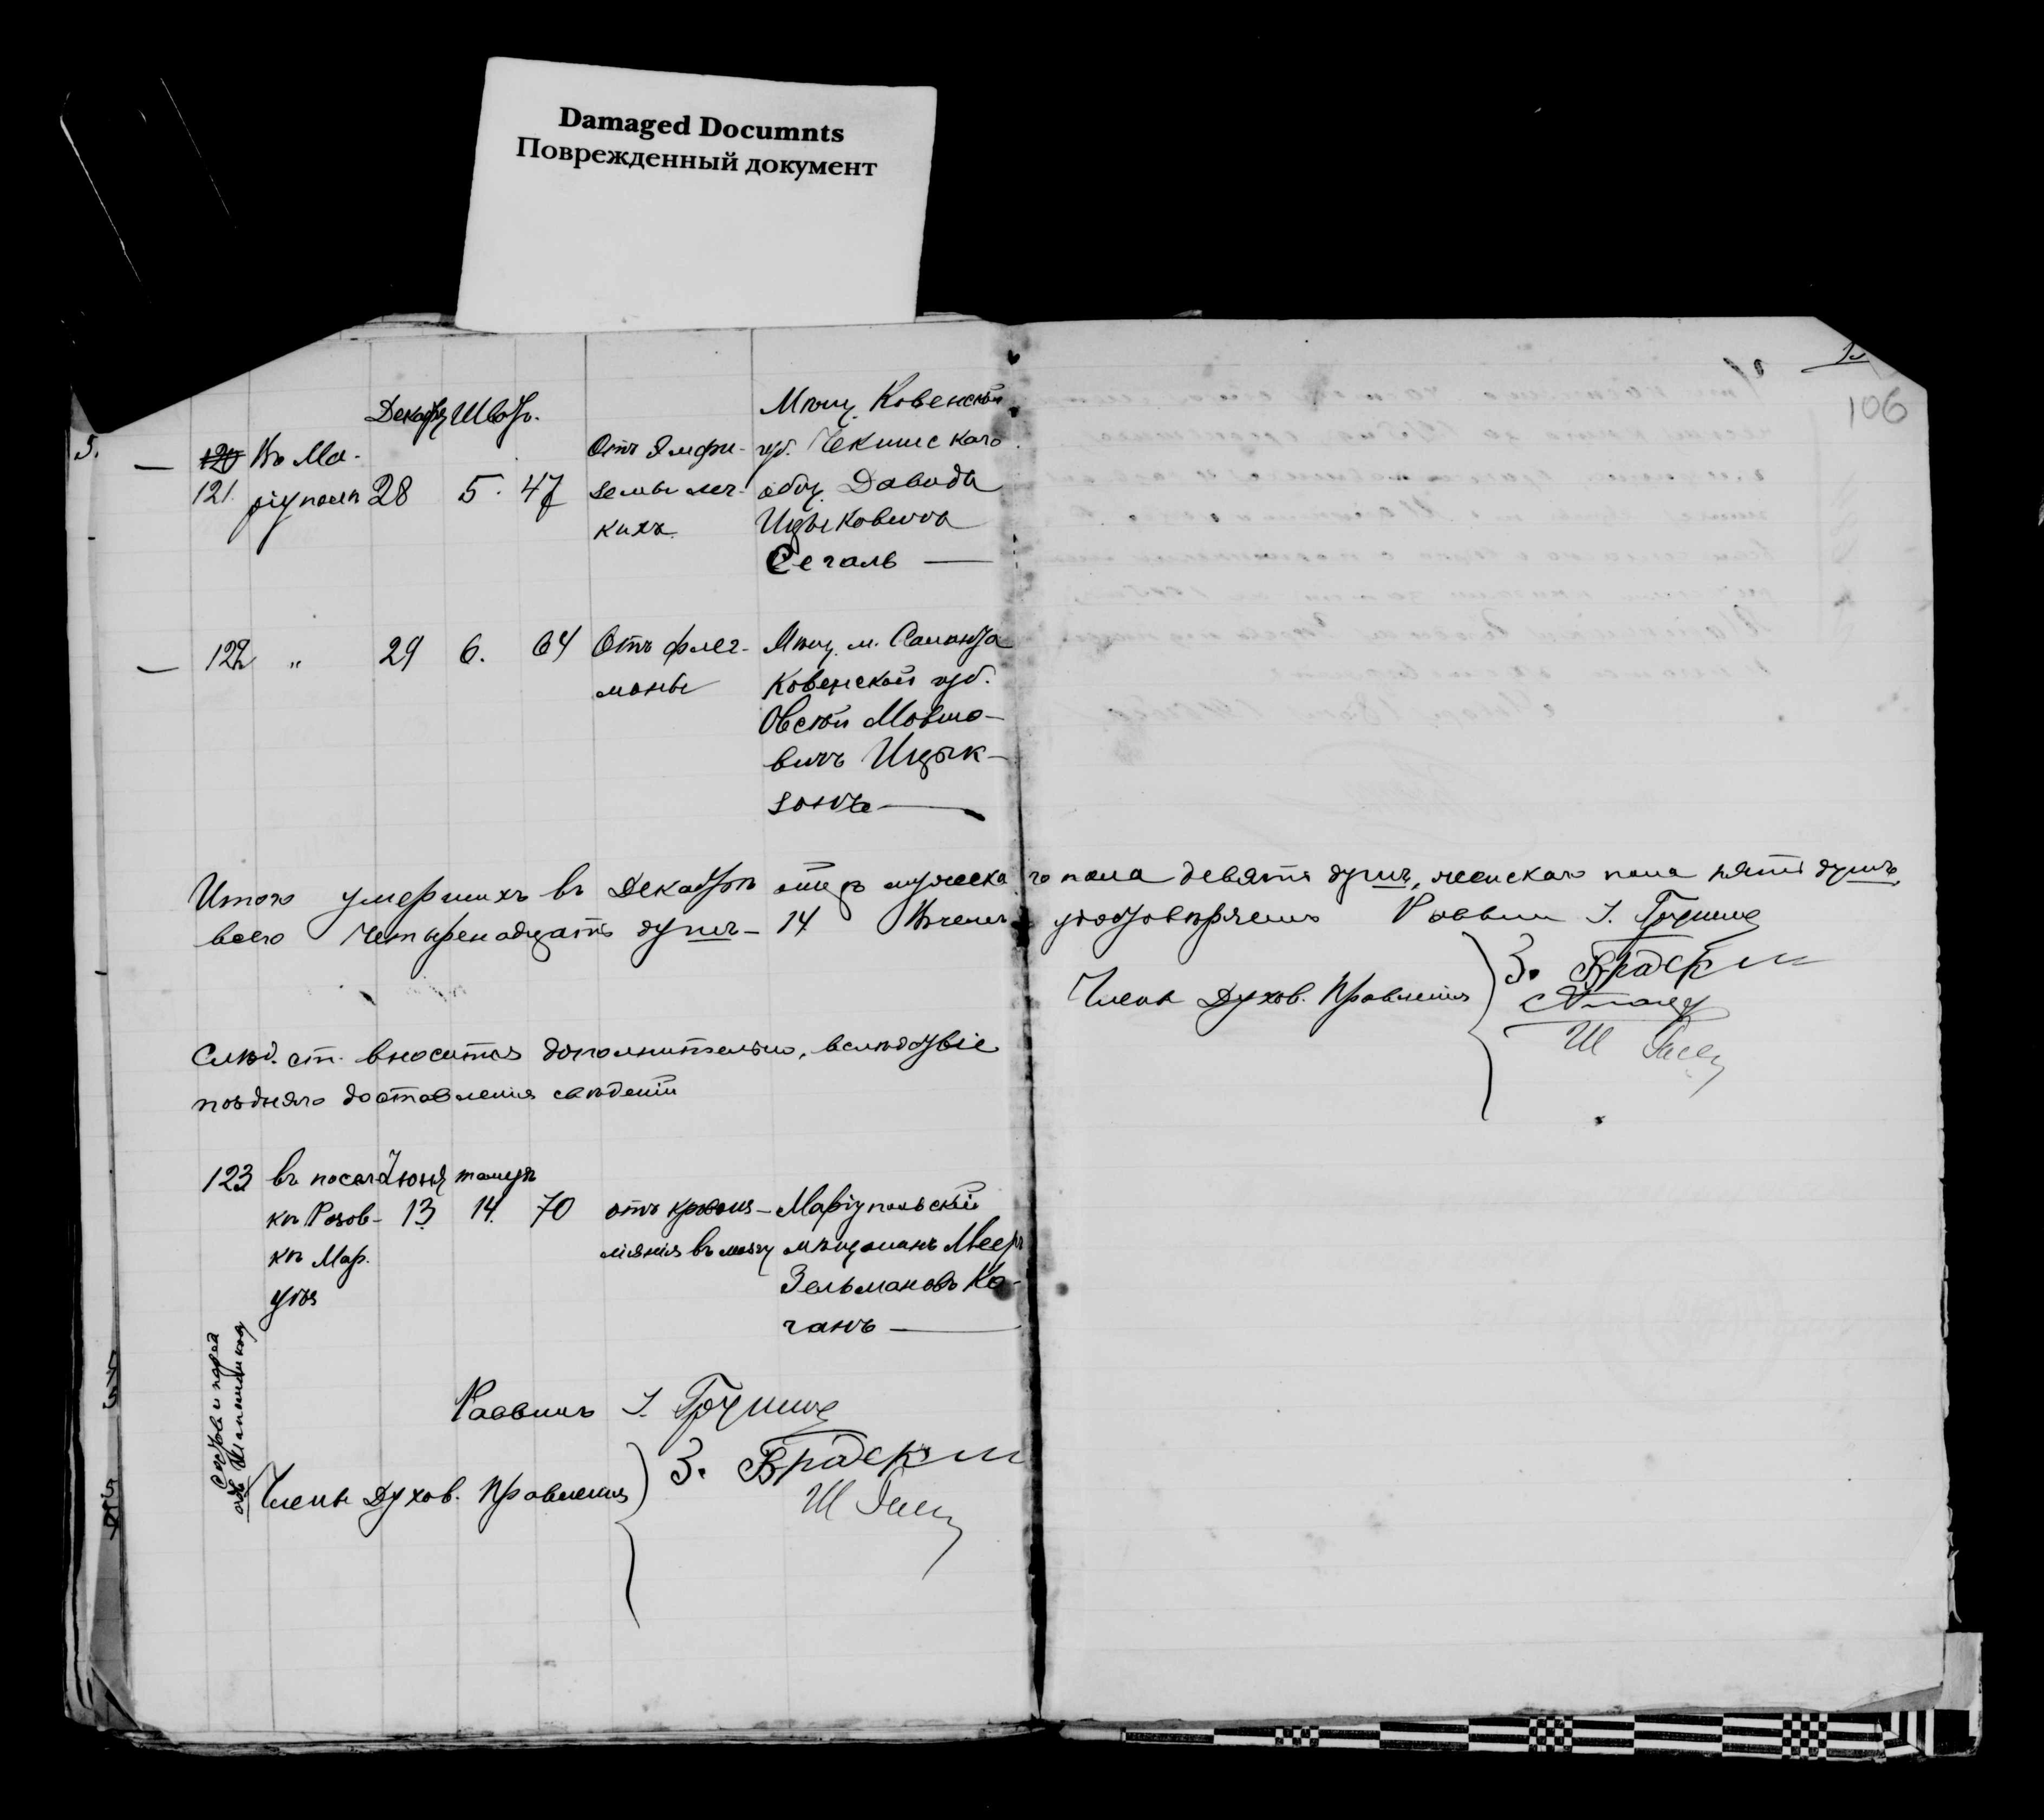 Damaged Documnts
Поврежденный документ
106
5.
Декабр Швотъ.
120
121.
Въ Ма-
ріуполѣ
28 5. 47
Отъ Эмфи-
земы лег-
кихъ.
Мѣщ. Ковенской
губ. Чекишскаго
общ. Давидъ
Ицыковичъ
Сегаль
122 " 29 6. 64
Отъ флег-
моны
Мѣщ. м. Саланта
Ковенской губ.
Овсей Мовшо-
вичъ Ицык-
зонъ
Итого умершихъ въ Декабрѣ мужеска го пола девять душъ, женскаго пола пять душъ,
всего четырнадцать душъ - 14 удостовѣряемъ Раввинъ І.
Члены Духов. Правленія З. Ш
Слѣд. ст. вносится дополнительно, вслѣдствіе
поздняго доставленія свѣденій
123 въ посел Іюня тамузъ
кѣ Розов- 13 14. 70
кѣ Мар.
уѣз
отъ кровоиз-
ліянія въ мозгъ
Маріупольскій
мѣщанинъ Мееръ
Зельмановъ Ка-
ганъ
Раввинъ І.
Члены Духов. Правленія З. Ш